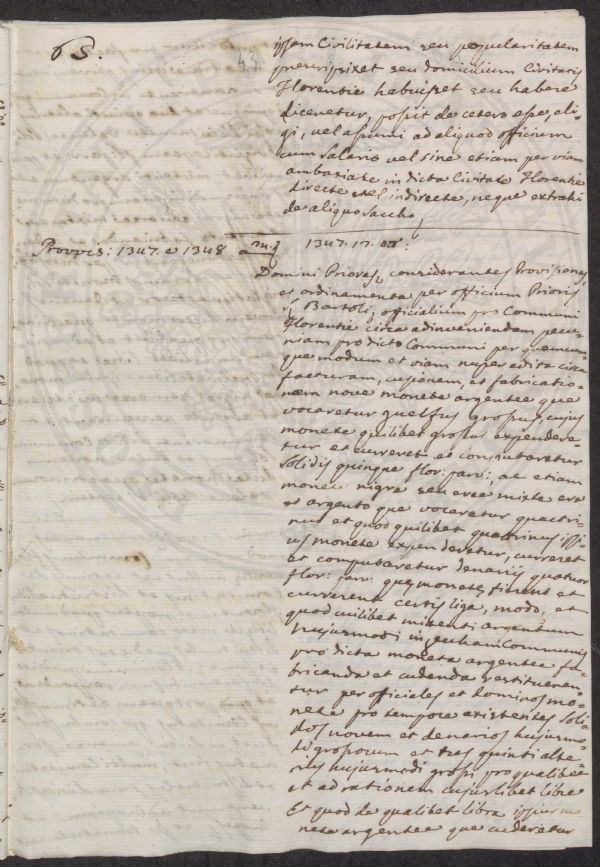 65.
43
ipsam Civilitatem seu popularitatem
prescripsisset seu domicilium Civitatis
Florentie habuisset seu habere
diceretur, possit de cetero esse, eli-
gi, vel assumi ad aliquod officium
cum Salario vel sine etiam per viam
ambaxiate in dicta Civitate Florentie
directe vel indirecte, neque extrahi
de aliquo Saccho,
Provvis: 1347. e 1348 a
1347. 17.
Domini Priores, considerantes Provisiones,
et ordinamenta per officium Prioris
Bartoli, officialium pro Communi
Florentie circa adinveniendam pecu-
niam pro dicto Communi per quemcum-
que modum et viam nuper edita circa
facturam, cusionem, et fabricatio-
nem nove monete argentee que
vocaretur guelfus grossus, cujus
monete quilibet grossus expendere-
tur et curreret et computaretur
Solidis quinque flor: parv: ac etiam
monete nigra seu eree mixte ere
et argento que vocaretur quattri-
nus et quod quilibet quattrinus ipsi-
us monete expenderetur, curreret
et computaretur denariis quatuor
flor: parv: que monete fierent et
currerent certis liga, modo, et
quod cuilibet mictenti argentum
hujusmodi in zecham Communis
pro dicta moneta argentea fa-
bricanda et cudenda restitueren-
tur per officiales et dominos mo-
nete pro tempore existentes Soli-
dos novem et denarios hujusmo-
di grossorum et tres quinti alte-
rius hujusmodi grossi pro qualibet
et ad rationem cujuslibet libre
Et quod de qualibet libra ipsius mo-
neta argentee que cuderetur